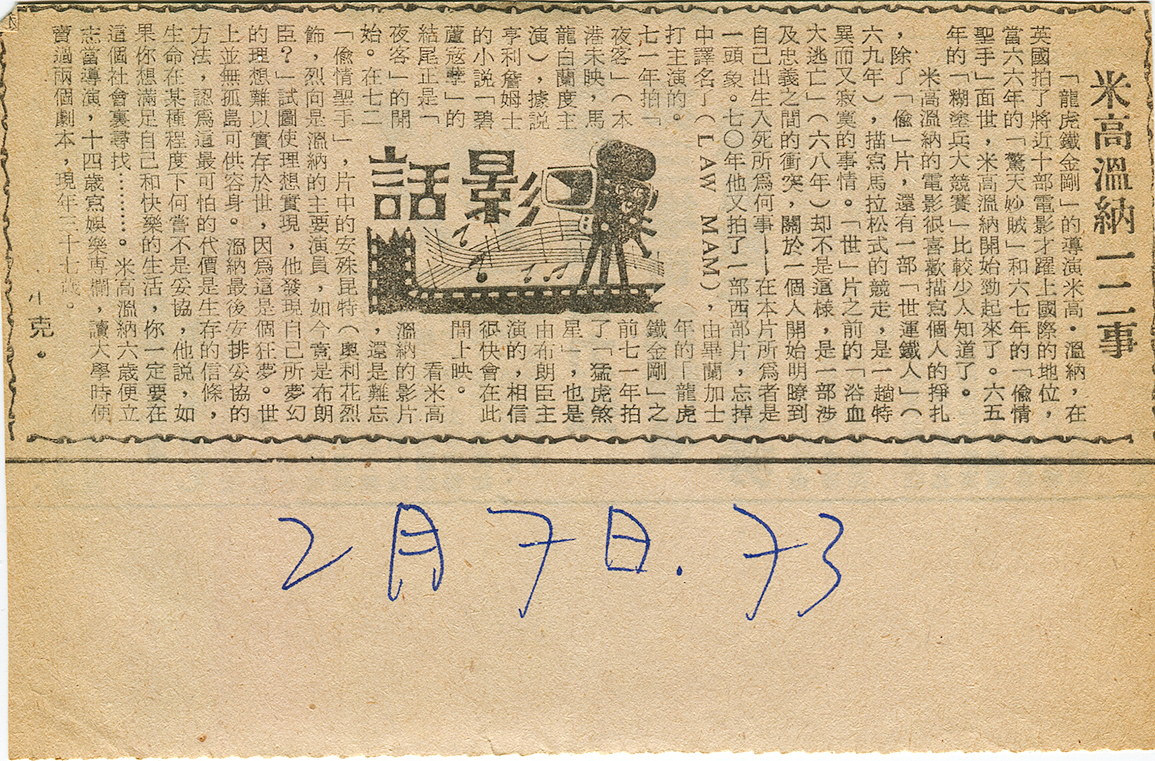 米高溫納一二事
「龍虎鐵金剛」的導演米高・溫納,在
英國拍了將近十部電影才躍上國際的地位,
當六六年的「驚天妙賊」和六七年的「偷情
聖手」面世,米高溫納開始勁起來了。六五
年的「糊塗兵大競賽」比較少人知道了。
米高溫納的電影很喜歡描寫個人的掙扎
,除了「偷」片,還有一部「世運鐵人」(
六九年),描寫馬拉松式的競走,是一趟特
異而又寂寞的事情。「世」片之前的「浴血
大逃亡」(六八年)却不是這樣,是一部涉
及忠義之間的衝突,關於一個人開始明瞭到
自己出生入死所為何事——在本片所為者是
一頭象。七〇年他又拍了一部西部片,忘掉
中譯名了(LAW MAM),由畢蘭加士
打主演的。
七一年拍「
夜客」(本
港未映,馬
龍白蘭度主
演),據說
亨利詹姆士
的小說「碧
蘆寇孽」的
結尾正是「
夜客」的開
始。在七二
影話
年的「龍虎
鐵金剛」之
前七一年拍
了「猛虎煞
星」,也是
由布朗臣主
演的,相信
很快會在此
間上映。
看米高
溫納的影片
,還是難忘
「偷情聖手」,片中的安殊昆特(奧利花烈
飾,烈向是溫納的主要演員,如今竟是布朗
臣?」試圖使理想實現,他發現自己所夢幻
的理想難以實存於世,因為這是個狂夢。世
上並無孤島可供容身。溫納最後安排妥協的
方法,認為這最可怕的代價是生存的信條,
生命在某種程度下何嘗不是妥協,他說,如
果你想滿足自己和快樂的生活,你一定要在
這個社會裏尋找………。米高溫納六歲便立
志當導演,十四歲寫娛樂專欄,讀大學時便
賣過兩個劇本,現年三十七歲。
小克。
2月7日.73